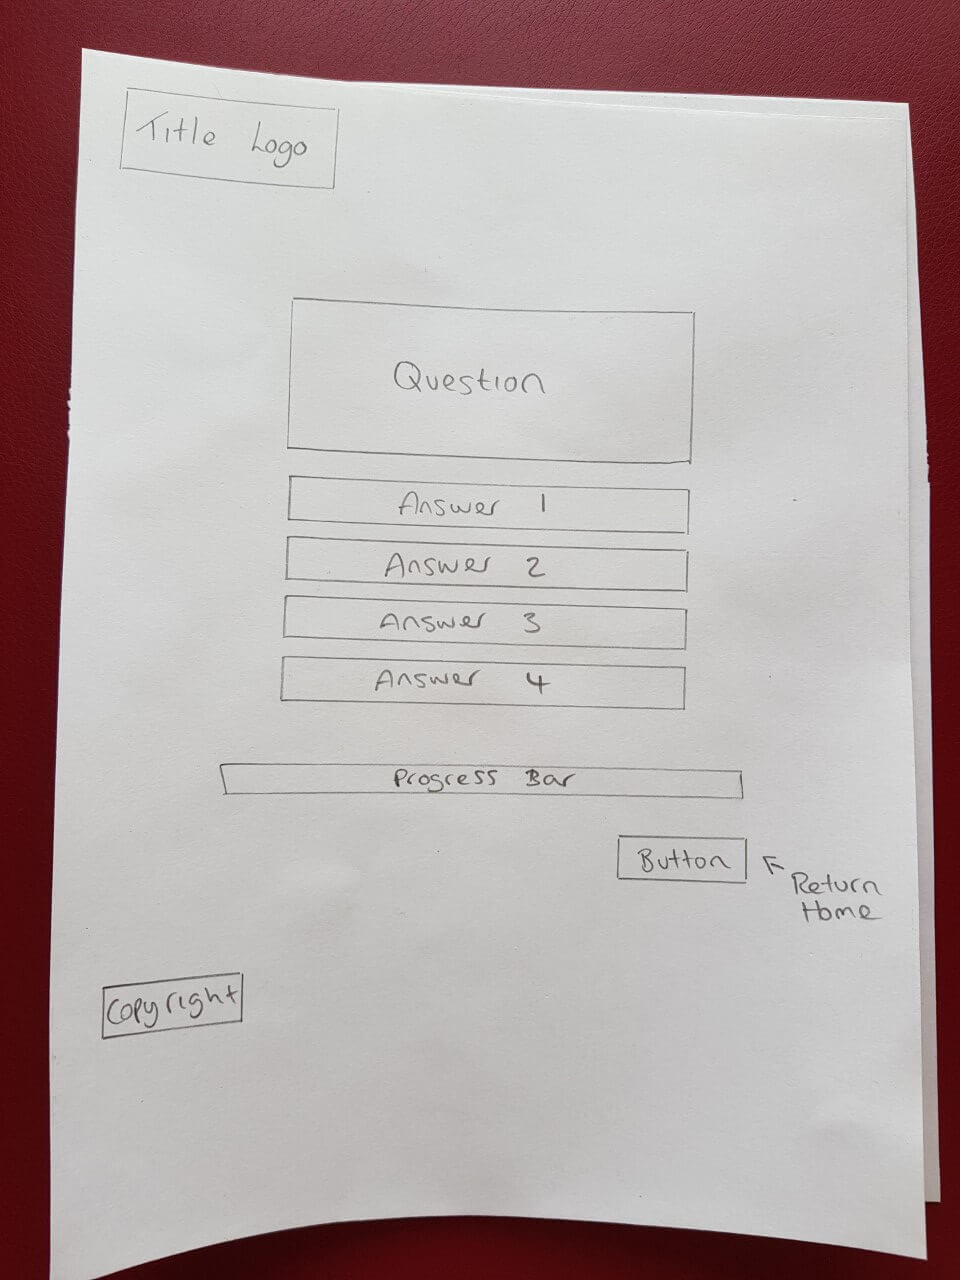 Title Logo
Question
Answer 1
Answer 2
Answer 3
Answer 4
Progress Bar
Button
Return
Home
Copyright